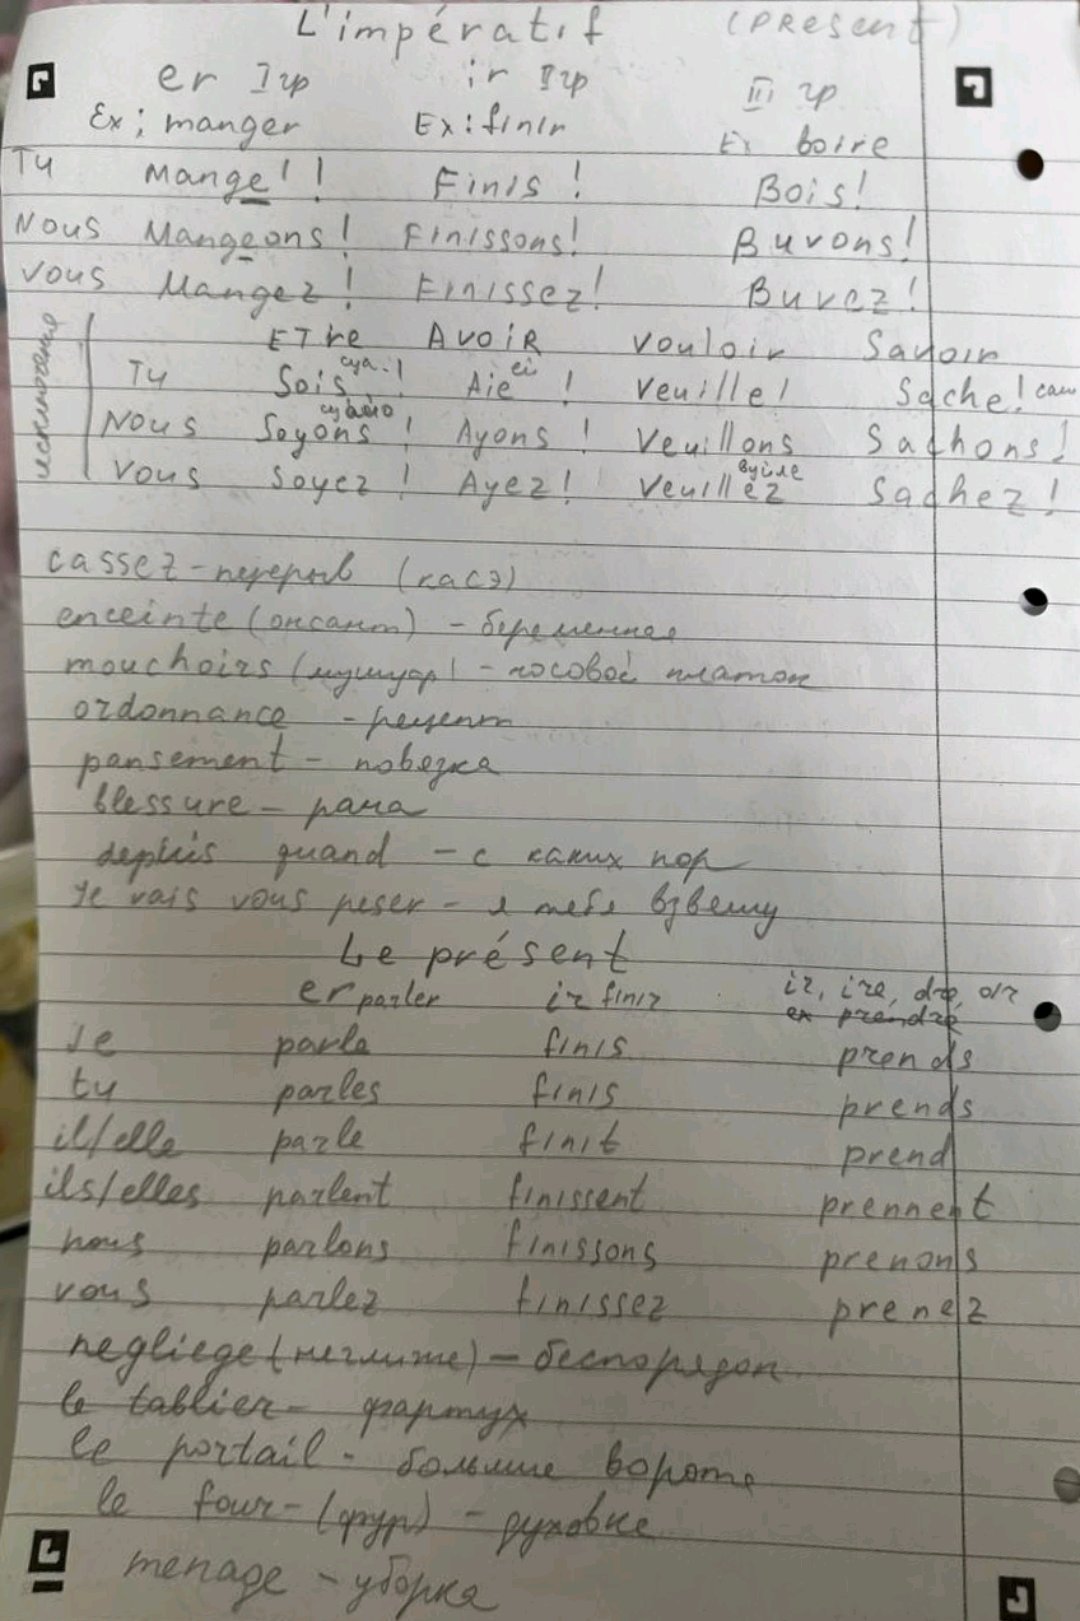 L'impératif (present)
er I гр ir II гр III гр
Ex; manger Ex: finir Ex boire
Tu Mange!! Finis! Bois!
Nous Mangeons! Finissons! Buvons!
Vous Mangez! Finissez! Buvez!
исключения
ETre AvoiR vouloir Savoir
суа.! ei
Tu Sois ! Aie ! Veuille! Sache! саш
Nous Soyons ! Ayons ! Veuillons Sachons!
Vous Soyez ! Ayez! Veuillez Sachez!
cassez - перерыв (касэ)
enceinte (онсант) - беременная
mouchoirs (мушуар) - носовой платок
ordonnance - рецепт
pansement - повязка
blessure - рана
depuis quand - с каких пор
Je vais vous peser - я тебя взвешу
Le présent
er parler ir finir ir, ire, dre, oir
ex prendre
Je parle finis prends
tu parles finis prends
il/elle parle finit prend
ils/elles parlent finissent prennent
nous parlons finissons prenons
vous parlez finissez prenez
negliege (неглиже) - беспорядок
le tablier - фартук
le portail - большие ворота
le four - (фур) - духовка
menage - уборка